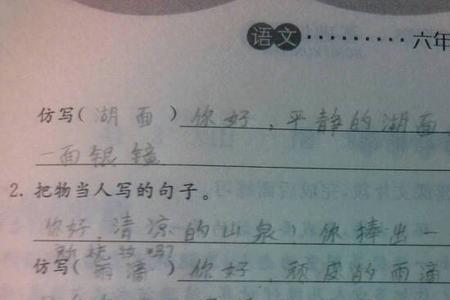 语文·········六年
仿写(湖面)你好，平静的湖面
一面银镜
2. 把物当人写的句子。
你好，清凉的山泉，你捧出一
吗？
仿写(雨滴)你好，顽皮的雨滴